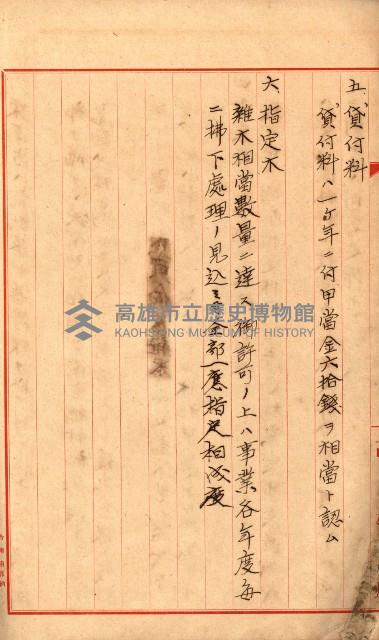 五、貸付料
貸付料ハ一ケ年ニ付甲當金六拾錢ヲ相當ト認ム
六、指定木
雜木相當數量ニ達ス御許可ノ上ハ事業各年度每
ニ拂下處理ノ見込ミ 全部一應指定相成度
高雄市立歷史博物館
KAOHSIUNG MUSEUM OF HISTORY